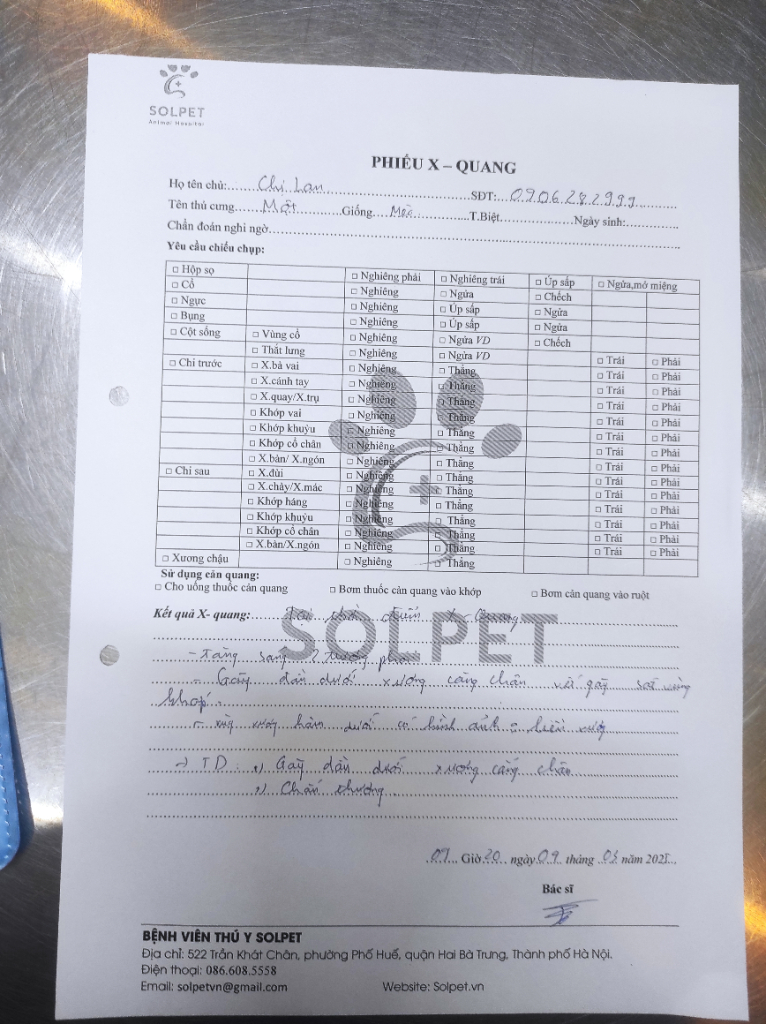 SOLPET
Animal Hospital
PHIẾU X – QUANG
Họ tên chủ: Chị Lan SĐT: 0906282999
Tên thú cưng Mật Giống Mèo T.Biệt Ngày sinh:
Chẩn đoán nghi ngờ
Yêu cầu chiếu chụp:
□ Hộp sọ □ Nghiêng phải □ Nghiêng trái □ Úp sấp □ Ngửa,mở miệng
□ Cổ □ Nghiêng □ Ngửa □ Chếch
□ Ngực □ Nghiêng □ Úp sấp □ Ngửa
□ Bụng □ Nghiêng □ Úp sấp □ Ngửa
□ Cột sống □ Vùng cổ □ Nghiêng □ Ngửa VD □ Chếch
□ Thắt lưng □ Nghiêng □ Ngửa VD
□ Chi trước □ X.bả vai □ Nghiêng □ Thẳng □ Trái □ Phải
□ X.cánh tay □ Nghiêng □ Thẳng □ Trái □ Phải
□ X.quay/X.trụ □ Nghiêng □ Thẳng □ Trái □ Phải
□ Khớp vai □ Nghiêng □ Thẳng □ Trái □ Phải
□ Khớp khuỷu □ Nghiêng □ Thẳng □ Trái □ Phải
□ Khớp cổ chân □ Nghiêng □ Thẳng □ Trái □ Phải
□ X.bàn/ X.ngón □ Nghiêng □ Thẳng □ Trái □ Phải
□ Chi sau □ X.đùi □ Nghiêng □ Thẳng □ Trái □ Phải
□ X.chày/X.mác □ Nghiêng □ Thẳng □ Trái □ Phải
□ Khớp háng □ Nghiêng □ Thẳng □ Trái □ Phải
□ Khớp khuỷu □ Nghiêng □ Thẳng □ Trái □ Phải
□ Khớp cổ chân □ Nghiêng □ Thẳng □ Trái □ Phải
□ X.bàn/X.ngón □ Nghiêng □ Thẳng □ Trái □ Phải
□ Xương chậu □ Nghiêng □ Thẳng
Sử dụng cản quang:
□ Cho uống thuốc cản quang □ Bơm thuốc cản quang vào khớp □ Bơm cản quang vào ruột
Kết quả X- quang: Tại thời điểm X-Quang
SOLPET
- Tăng sáng 2 trường phổi
- Gãy đầu dưới xương cẳng chân
khớp.
- xương hàm dưới có hình ảnh
→ TD: 1) Gãy đầu dưới xương cẳng chân
2) Chấn thương
09 Giờ 20 ngày 09 tháng 05 năm 2025
Bác sĩ
BỆNH VIÊN THÚ Y SOLPET
Địa chỉ: 522 Trần Khát Chân, phường Phố Huế, quận Hai Bà Trưng, Thành phố Hà Nội.
Điện thoại: 086.608.5558
Email: solpetvn@gmail.com Website: Solpet.vn